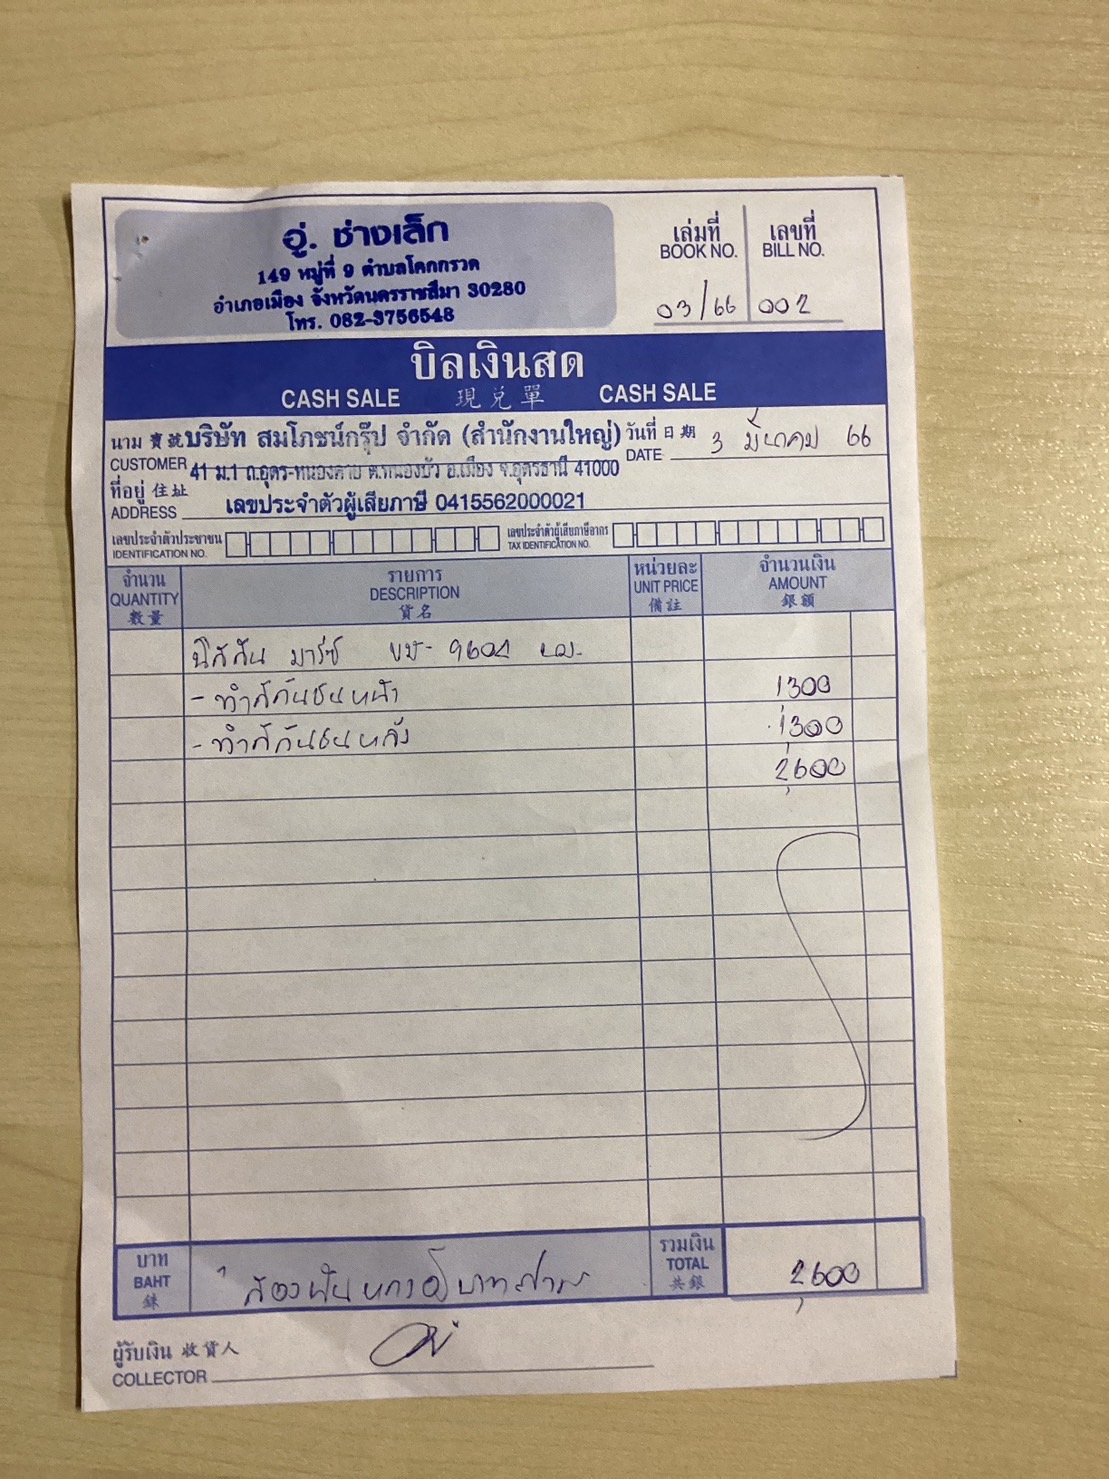 อู่. ช่างเล็ก
149 หมู่ที่ 9 ตำบลโคกกรวด
อำเภอเมือง จังหวัดนครราชสีมา 30280
โทร. 082-3756548
เล่มที่ เลขที่
BOOK NO. BILL NO.
03/66 002
บิลเงินสด
CASH SALE 現兌單 CASH SALE
นาม 寶號 บริษัท สมโภชน์กรุ๊ป จำกัด (สำนักงานใหญ่) วันที่ 日期 3 มีนาคม 66
CUSTOMER 41 ม.1 ถ.อุดร-หนองคาย ต.หนองบัว อ.เมือง จ.อุดรธานี 41000 DATE
ที่อยู่ 住址
ADDRESS เลขประจำตัวผู้เสียภาษี 0415562000021
เลขประจำตัวประชาชน เลขประจำตัวผู้เสียภาษีอากร
IDENTIFICATION NO. TAX IDENTIFICATION NO.
จำนวน รายการ หน่วยละ จำนวนเงิน
QUANTITY DESCRIPTION UNIT PRICE AMOUNT
數量 貨名 備註 銀額
นิสสัน มาร์ช
- ทำสีกันชนหน้า 1300
- ทำสีกันชนหลัง 1300
2,600
บาท รวมเงิน
BAHT สองพันหกร้อยบาทถ้วน TOTAL 2,600
銖 共銀
ผู้รับเงิน 收貨人
COLLECTOR